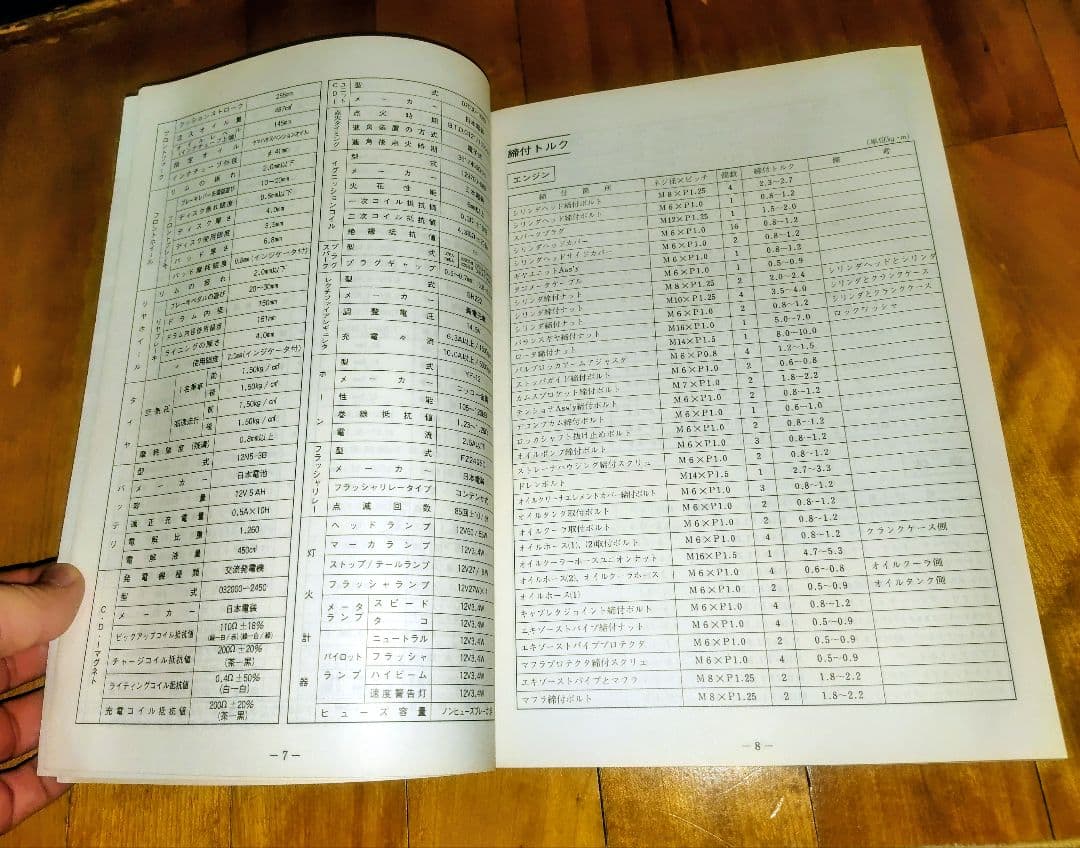 クッションストローク 255mm
注入オイル量 487cm³
オイルレベル (インナチューブ上端) 145mm
指定オイル
インナチューブ外径
リムの振れ 2.0mm以下
ブレーキレバー先端部遊び 10~20mm
ディスク振れ限度 0.5mm以下
ディスク厚さ 4.0mm
ディスク使用限度 3.5mm
パッド厚さ 6.8mm
パッド摩耗限度 0.8mm(インジケータ付)
フロントフォーク
フロントホイール
フロントブレーキ
リムの振れ 2.0mm以下
ブレーキペダルの遊び 20~30mm
ドラム内径 150mm
ドラム内径使用限度 151mm
ライニングの厚さ 4.0mm
〃 使用限度 2.0mm(インジケータ付)
リヤホイール
リヤブレーキ
タイヤ
空気圧
1名乗車 前 1.50kg/cm²
後 1.50kg/cm²
高速走行 前 1.50kg/cm²
後 1.50kg/cm²
摩耗限度(残溝) 0.8mm以上
バッテリ
型式 12N5-3B
メーカー 日本電池
容量 12V 5AH
適正充電量 0.5A×10H
電解比重 1.260
電解液量 450cm³
C.D.Iマグネト
発電機種類 交流発電機
型式 032000-2450
メーカー 日本電装
ピックアップコイル抵抗値 110Ω±15%
チャージコイル抵抗値 200Ω±20% (茶―黒)
ライティングコイル抵抗値 0.4Ω±50% (白―白)
充電コイル抵抗値 200Ω±20% (茶―黒)
CDIユニット
型式
メーカー 日本電装
点火タイミング
点火時期
進角装置の方式 電子式
進角後点火時期
イグニッションコイル
型式
メーカー
火花性能
一次コイル抵抗値
二次コイル抵抗値
絶縁抵抗値
スパークプラグ
型式
プラグギャップ
レクチファイアレギュレータ
型式
メーカー
調整電圧
充電々流
ホーン
型式 YF-12
メーカー ニッコー金属
性能
巻線抵抗値
電流
フラッシャリレー
型式
メーカー 日本電装
フラッシャリレータイプ コンデンサ式
点滅回数
灯火計器
ヘッドランプ
マーカランプ 12V3.4W
ストップ/テールランプ
フラッシャランプ
メータランプ スピード 12V3.4W
タコ 12V3.4W
パイロットランプ ニュートラル 12V3.4W
フラッシャ 12V3.4W
ハイビーム 12V3.4W
速度警告灯 12V3.4W
ヒューズ容量
― 7 ―
締付トルク
(単位kg・m)
エンジン
締付箇所 ネジ径×ピッチ 個数 締付トルク 備考
シリンダヘッド締付ボルト M8×P1.25 4 2.3~2.7
シリンダヘッド締付ボルト M6×P1.0 1 0.8~1.2
スパークプラグ M12×P1.25 1 1.5~2.0
シリンダヘッドカバー M6×P1.0 16 0.8~1.2
シリンダヘッドサイドカバー M6×P1.0 2 0.8~1.2
ギヤユニットAss'y M6×P1.0 1 0.8~1.2
タコメータケーブル M6×P1.0 1 0.5~0.9
シリンダ締付ナット M8×P1.25 2 2.0~2.4 シリンダヘッドとシリンダ
シリンダ締付ナット M10×P1.25 4 3.5~4.0 シリンダとクランクケース
シリンダ締付ボルト M6×P1.0 2 0.8~1.2 シリンダとクランクケース
バランスギヤ締付ナット M16×P1.0 1 5.0~7.0 ロックワッシャ
ロータ締付ナット M14×P1.5 1 8.0~10.0
バルブロッカアームアジャスタ M6×P0.8 4 1.2~1.5
ストッパガイド締付ボルト M6×P1.0 2 0.6~0.8
カムスプロケット締付ボルト M7×P1.0 2 1.8~2.2
テンショナAss'y締付ボルト M6×P1.0 2 0.8~1.2
デコンプカム締付ボルト M6×P1.0 1 0.6~1.0
ロッカシャフト抜け止めボルト M6×P1.0 2 0.8~1.2
オイルポンプ締付ボルト M6×P1.0 3 0.8~1.2
ストレーナハウジング締付スクリュ M6×P1.0 2 0.8~1.2
ドレンボルト M14×P1.5 1 2.7~3.3
オイルクリーナエレメントカバー締付ボルト M6×P1.0 3 0.8~1.2
オイルタンク取付ボルト M6×P1.0 2 0.8~1.2
オイルクーラ取付ボルト M6×P1.0 2 0.8~1.2
オイルホース(1)、(2)取付ボルト M6×P1.0 4 0.8~1.2 クランクケース側
オイルクーラーホースユニオンナット M16×P1.5 1 4.7~5.3
オイルホース(2)、オイルクーラホース M6×P1.0 4 0.6~0.8 オイルクーラ側
オイルホース(1) M6×P1.0 2 0.5~0.9 オイルタンク側
キャブレタジョイント締付ボルト M6×P1.0 4 0.8~1.2
エキゾーストパイプ締付ナット M6×P1.0 4 0.5~0.9
エキゾーストパイププロテクタ M6×P1.0 2 0.5~0.9
マフラプロテクタ締付スクリュ M6×P1.0 4 0.5~0.9
エキゾーストパイプとマフラ M8×P1.25 2 1.8~2.2
マフラ締付ボルト M8×P1.25 2 1.8~2.2
― 8 ―